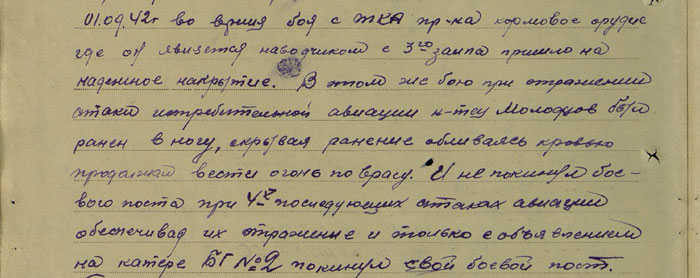 01.09.42г во время боя с ТКА пр-ка кормовое орудие
где он является наводчиком с 3го залпа пришло на
надежное накрытие. В этом же бою при отражении
атаки истребительной авиации к-тсу Молодцов был
ранен в ногу, скрывая ранение обливаясь кровью
продолжал вести огонь по врагу. И не покинул бое-
вого поста при 4х последующих атаках авиации
обеспечивая их отражение и только с объявлением
на катере БГ №2 покинул свой боевой пост.